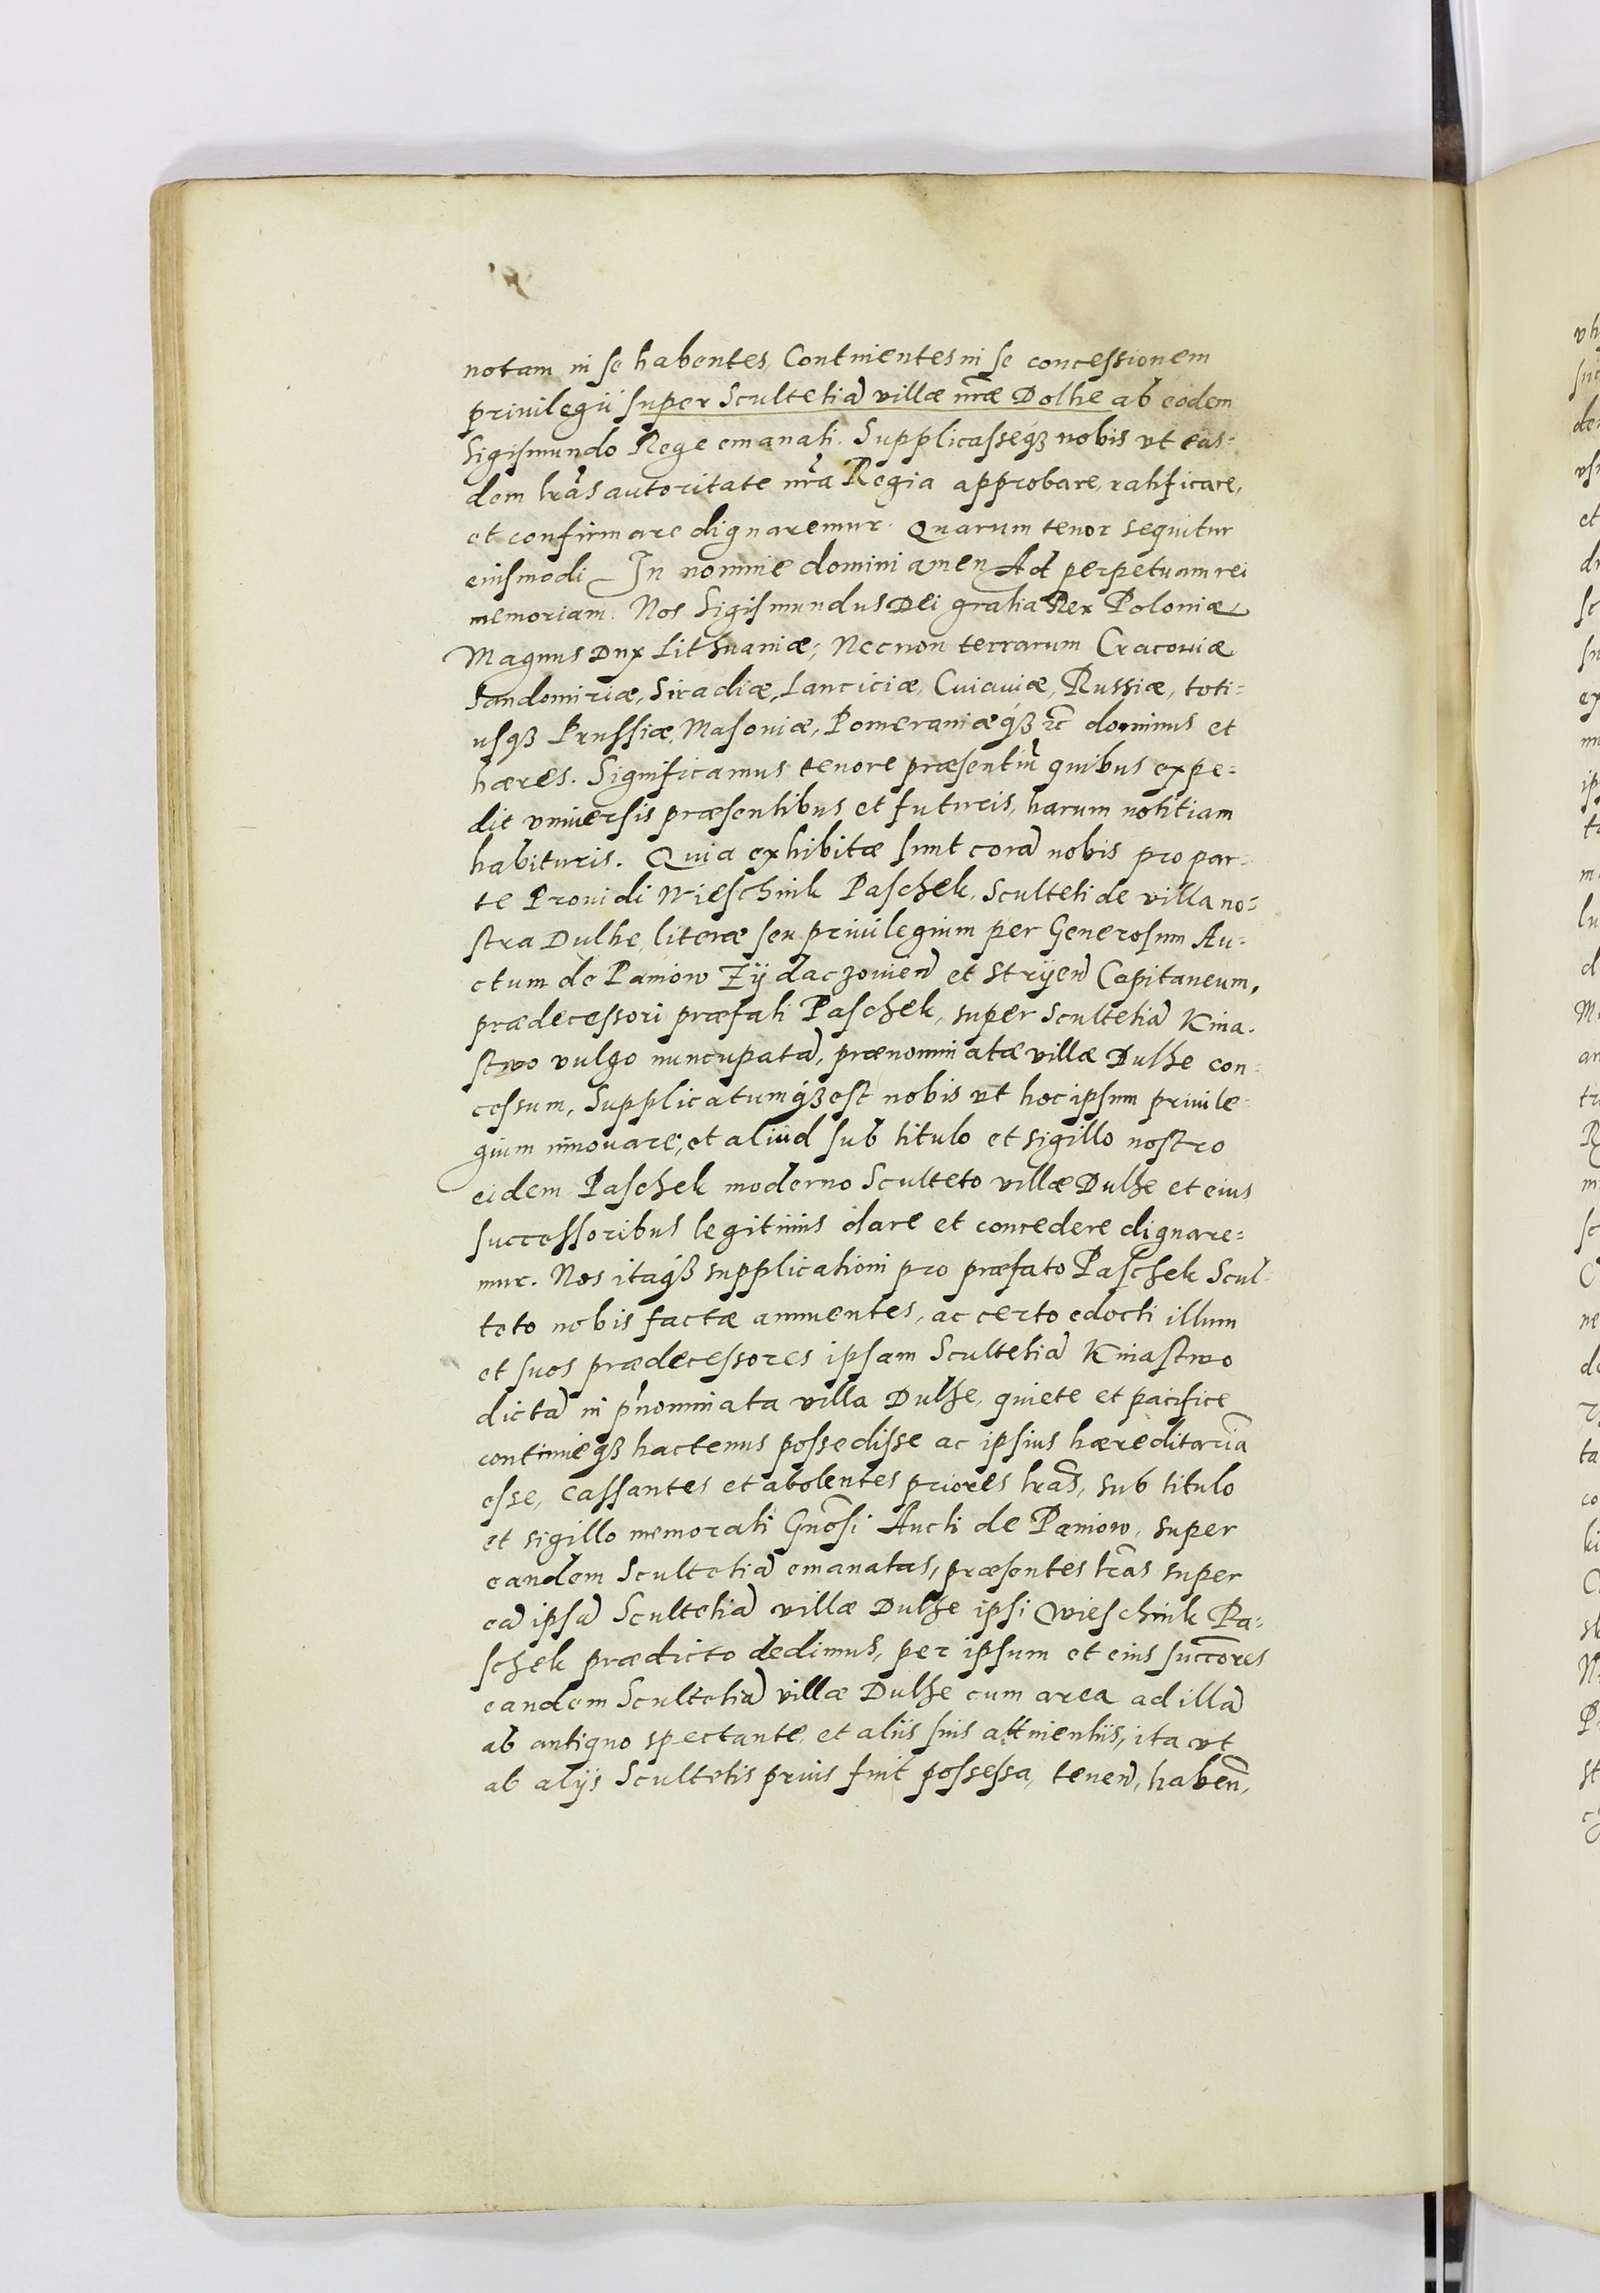 notam in se habentes, Continentes in se concessionem
priuilegii super Scultetiā villæ nr̄æ Dolhe ab eodem
Sigismundo Rege emanati. Supplicasseq₃ nobis vt eas-
dem lr̄as autoritate nr̄a Regia approbare, ratificare,
et confirmare dignaremur. Quarum tenor sequitur
eiusmodi. In nomine domini amen Ad perpetuam rei
memoriam. Nos Sigismundus Dei gratia Rex Poloniæ
Magnus Dux Lithuaniæ, Necnon terrarum Cracouiæ
Sandomiriæ, Siradiæ, Lanciciæ, Cuiauiæ, Russiæ, toti-
usq₃ Prussiæ, Masouiæ, Pomeraniæq₃ ⁊c̄ dominus et
hæres. Significamus tenore præsentiū quibus expe-
dit vniuersis præsentibus et futuris, harum notitiam
habituris. Quia exhibitæ sunt corā nobis pro par-
te Prouidi Wieschink Paschek, Sculteti de villa no-
stra Dulhe, literæ seu priuilegium per Generosum Au-
ctum de Paniow Zÿdaczouien̄ et Strÿen̄ Capitaneum,
prædecessori præfati Paschek, super Scultetiā Knia-
stwo vulgo nuncupatā, prænominatæ villæ Dulhe con-
cessum, Supplicatumq₃ est nobis vt hoc ipsum priuile-
gium innouare, et aliud sub titulo et sigillo nostro
eidem Paschek moderno Sculteto villæ Dulhe et eius
successoribus legitimis dare et concedere dignare-
mur. Nos itaq₃ supplicationi pro præfato Paschek Scul-
teto nobis factæ annuentes, ac certo edocti illum
et suos prædecessores ipsam Scultetiā Kniastwo
dictā in p̄nominata villa Dulhe, quiete et pacifice
continueq₃ hactenus possedisse ac ipsius hæreditariā
esse, cassantes et abolentes priores lr̄as, sub titulo
et sigillo memorati Gn̄osi Aucti de Paniow, super
eandem Scultetiā emanatas, præsentes lr̄as super
eā ipsā Scultetiā villæ Dulhe ipsi Wieschink Pa-
schek prædicto dedimus, per ipsum et eius succ̄ores
eandem Scultetiā villæ Dulhe cum area ad illā
ab antiquo spectante, et aliis suis attinentiis, ita vt
ab alÿs Scultetis prius fuit possessa, tenen̄, haben̄,